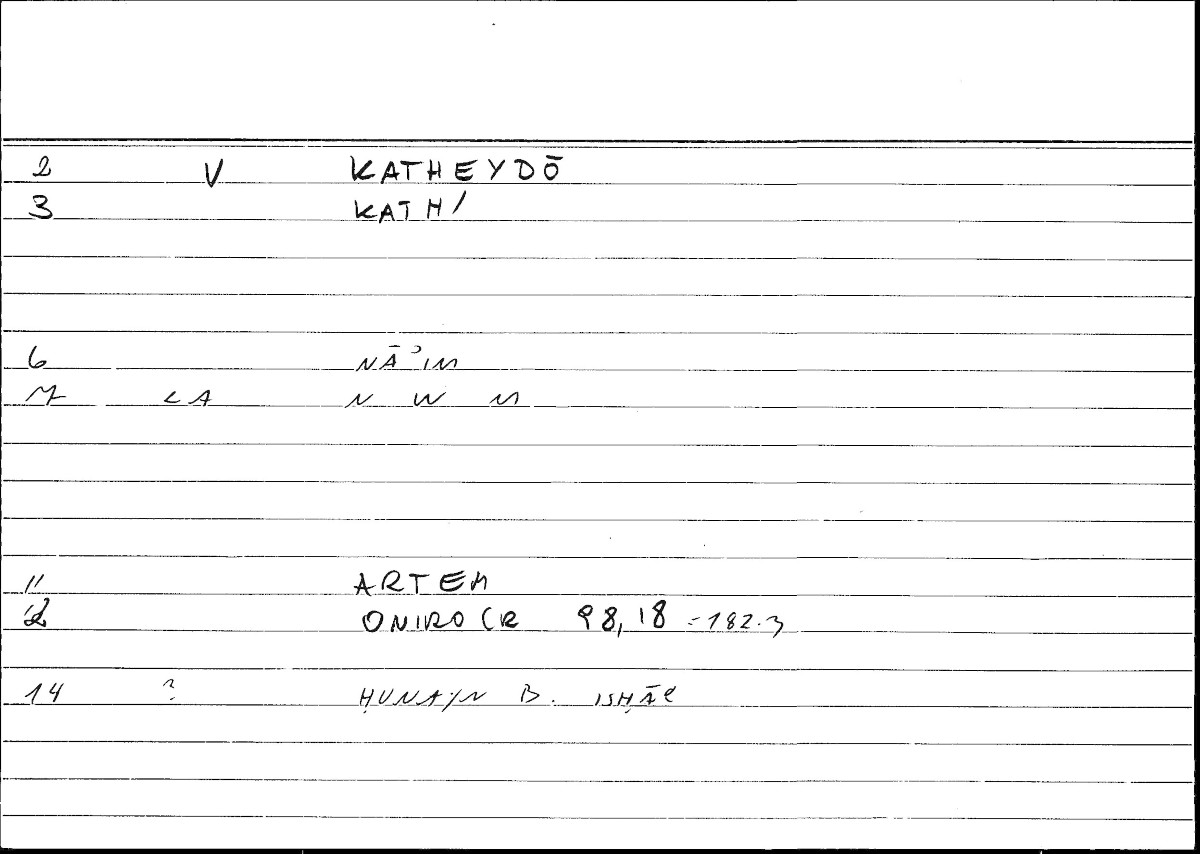 2 V KATHEYDŌ
3 KATH/
6 NĀʾIM
7 <A N W M
11 ARTEM
12 ONIROCR 98,18 = 182.3
14 ? ḤUNAYN B. ISḤĀQ